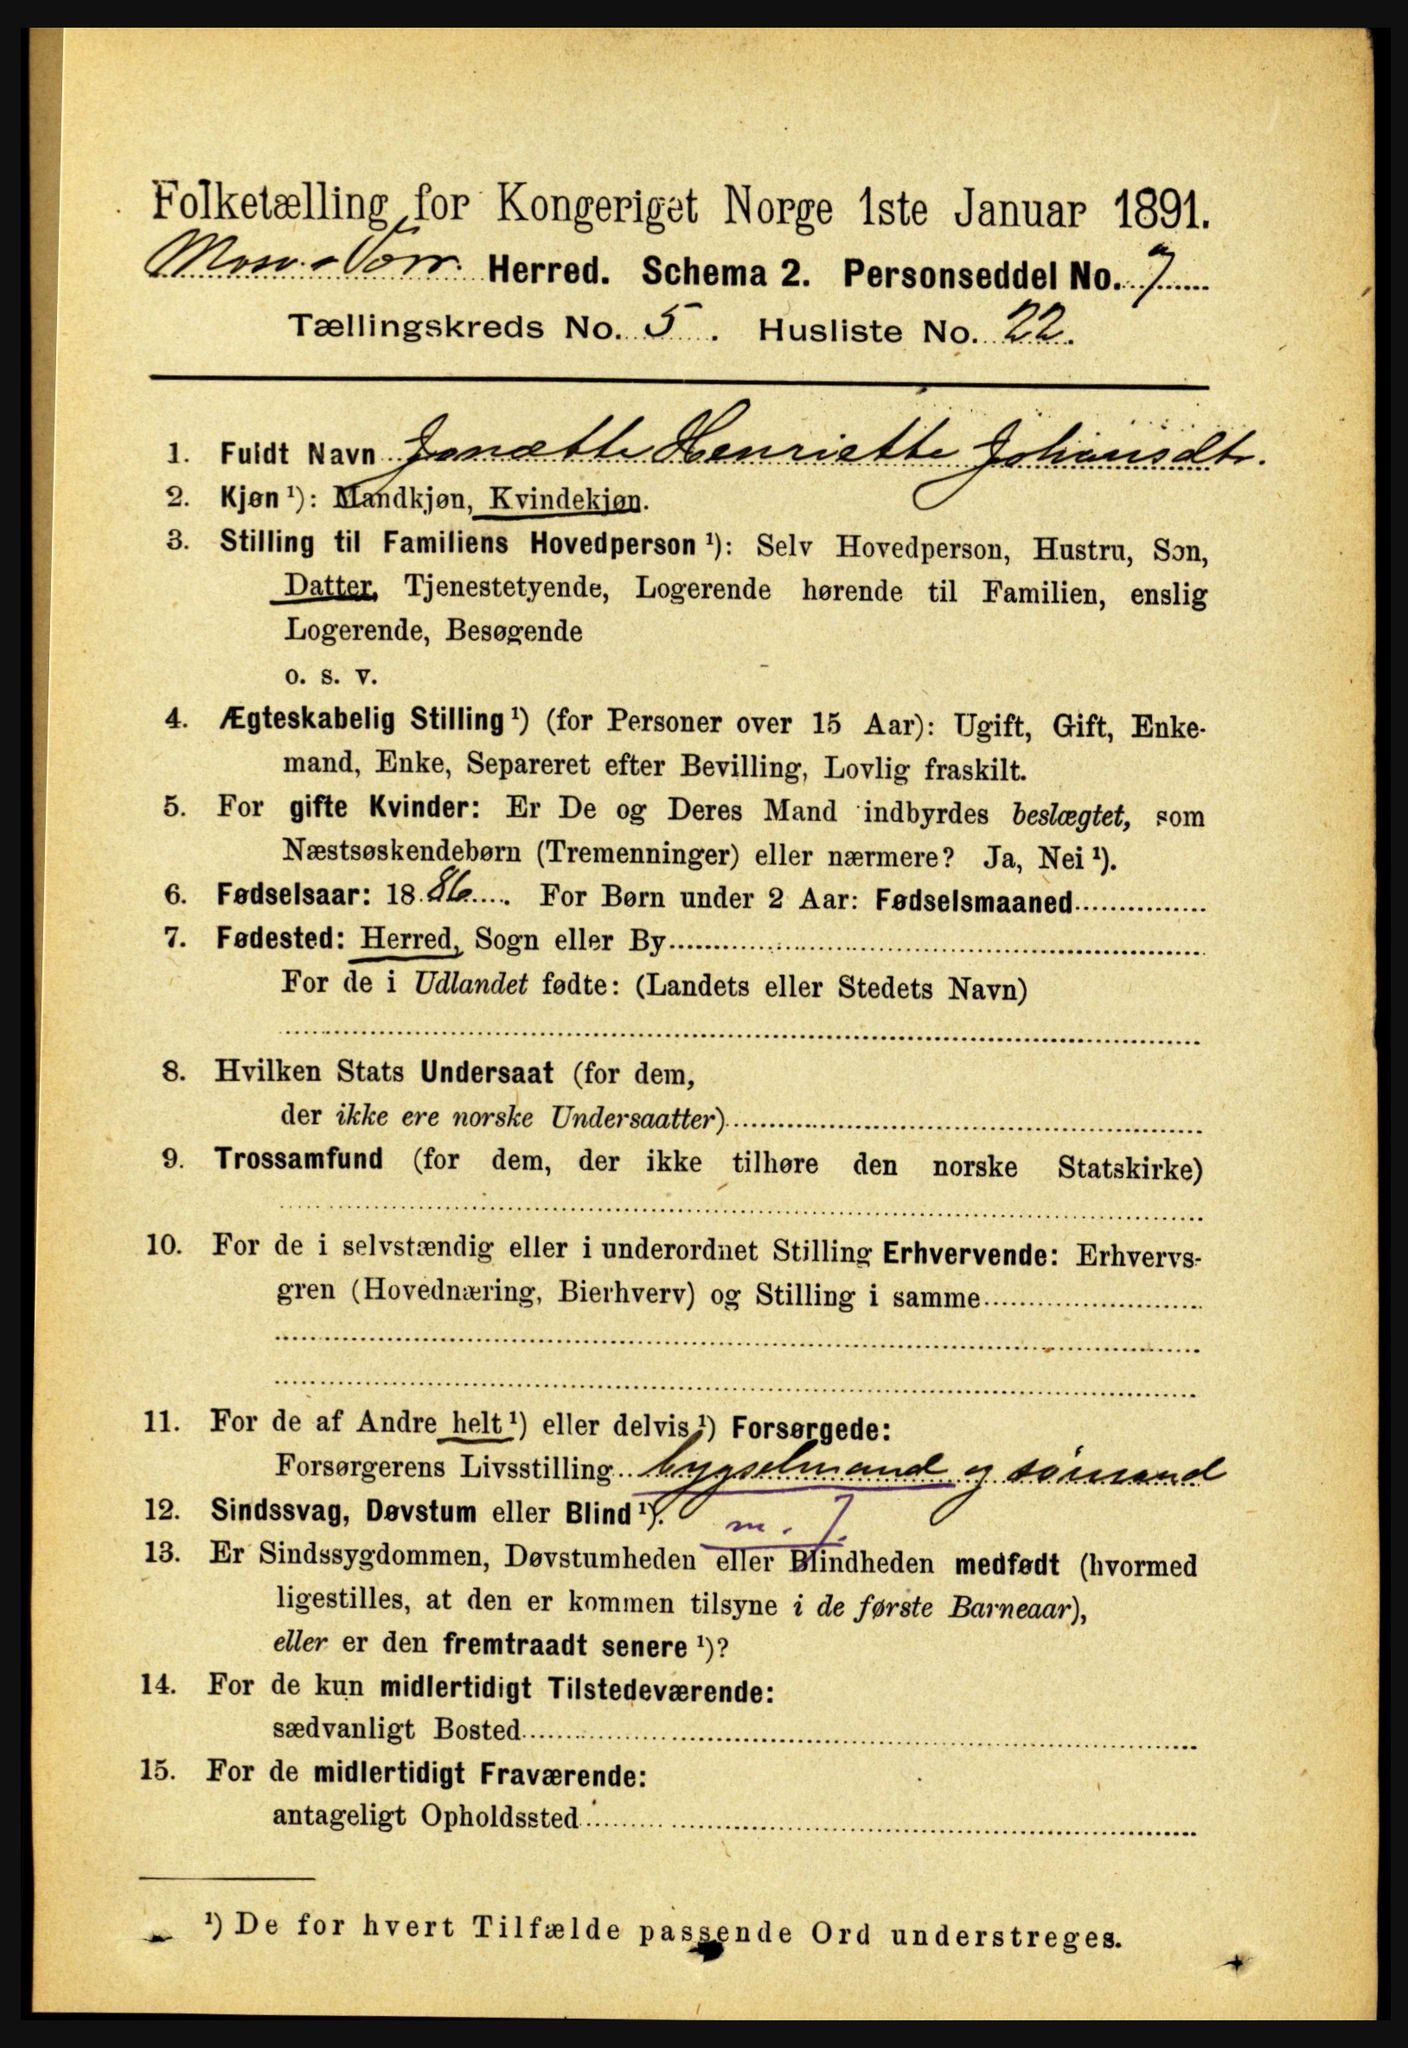 Folketælling for Kongeriget Norge 1ste Januar 1891.
Herred. Schema 2. Personseddel No. 7
Tællingskreds No. 5. Husliste No. 22.
1. Fuldt Navn Jonætte Henriette Johansdtr.
2. Kjøn ¹): Mandkjøn, Kvindekjøn.
3. Stilling til Familiens Hovedperson ¹): Selv Hovedperson, Hustru, Søn,
Datter, Tjenestetyende, Logerende hørende til Familien, enslig
Logerende, Besøgende
o. s. v.
4. Ægteskabelig Stilling ¹) (for Personer over 15 Aar): Ugift, Gift, Enke-
mand, Enke, Separeret efter Bevilling, Lovlig fraskilt.
5. For gifte Kvinder: Er De og Deres Mand indbyrdes beslægtet, som
Næstsøskendebørn (Tremenninger) eller nærmere? Ja, Nei ¹).
6. Fødselsaar: 1886. For Børn under 2 Aar: Fødselsmaaned
7. Fødested: Herred, Sogn eller By
For de i Udlandet fødte: (Landets eller Stedets Navn)
8. Hvilken Stats Undersaat (for dem,
der ikke ere norske Undersaatter)
9. Trossamfund (for dem, der ikke tilhøre den norske Statskirke)
10. For de i selvstændig eller i underordnet Stilling Erhvervende: Erhvervs-
gren (Hovednæring, Bierhverv) og Stilling i samme
11. For de af Andre helt ¹) eller delvis ¹) Forsørgede:
Forsørgerens Livsstilling bygselmand og sømand
12. Sindssvag, Døvstum eller Blind ¹). m. J.
13. Er Sindssygdommen, Døvstumheden eller Blindheden medfødt (hvormed
ligestilles, at den er kommen tilsyne i de første Barneaar),
eller er den fremtraadt senere ¹)?
14. For de kun midlertidigt Tilstedeværende:
sædvanligt Bosted
15. For de midlertidigt Fraværende:
antageligt Opholdssted
¹) De for hvert Tilfælde passende Ord understreges.